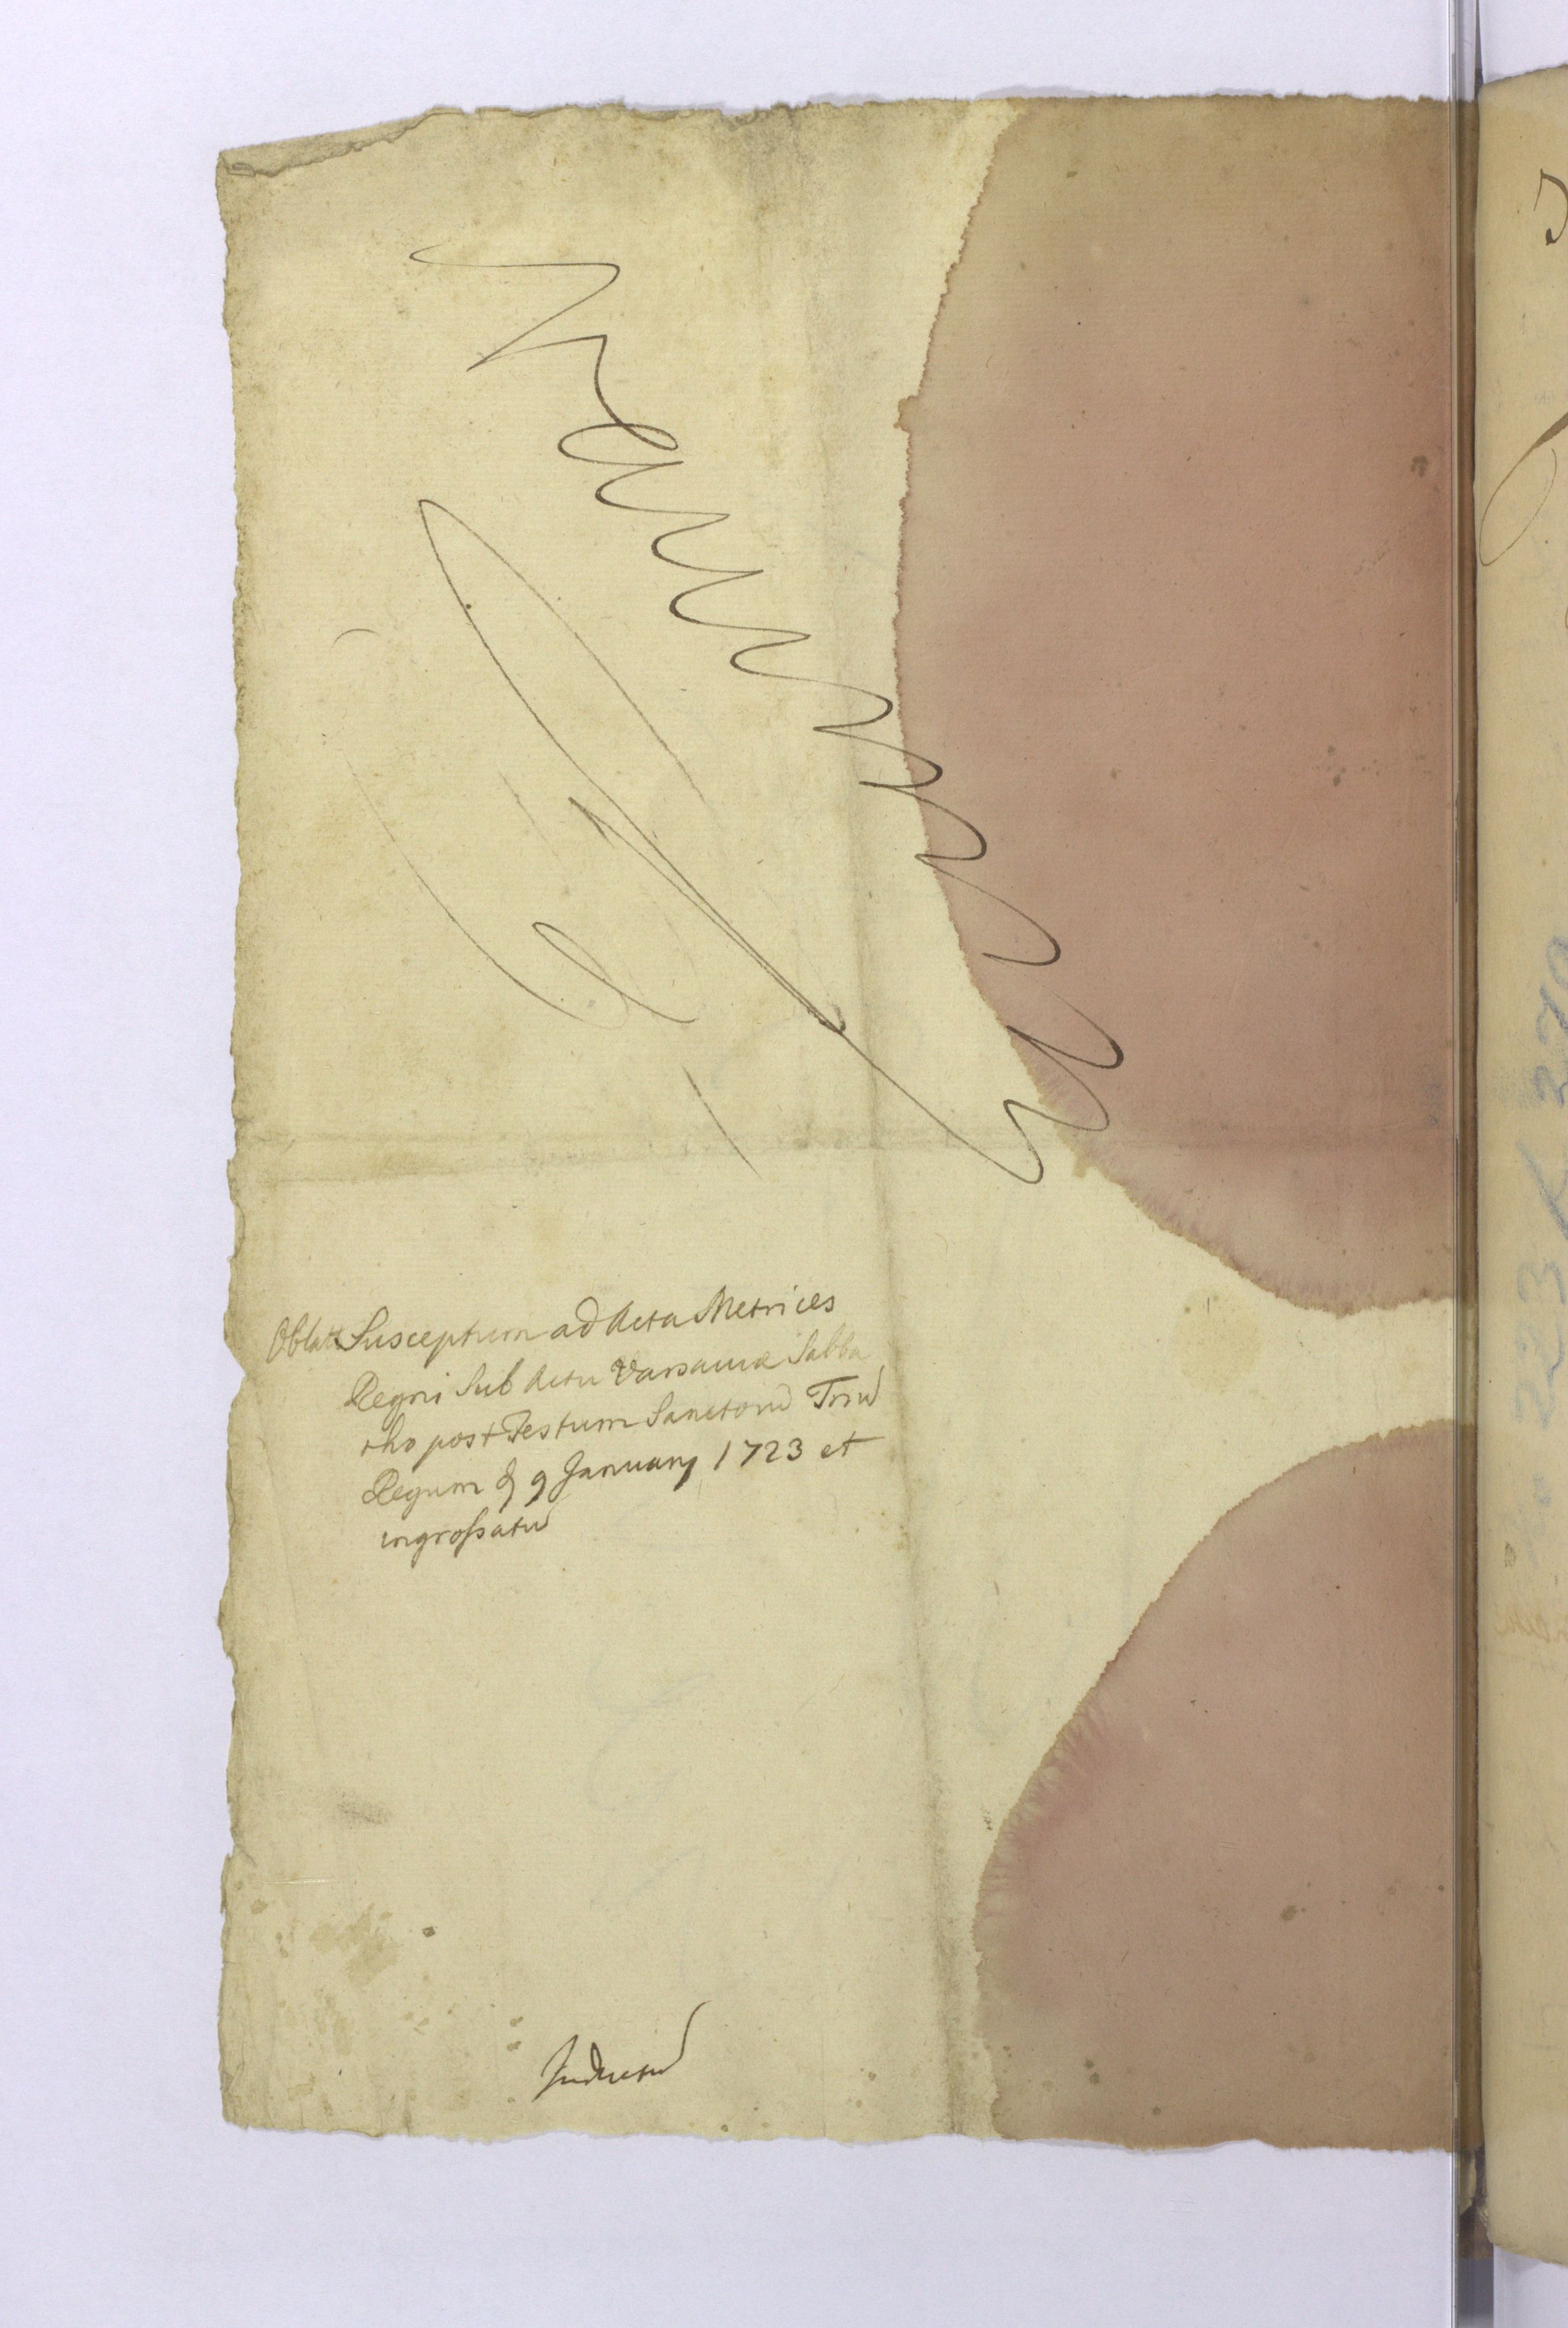 Oblatū Susceptum ad Acta Metrices
Regni Sub Actu Varsaviæ Sabba
tho post Festum Sanctorū Triū
Regum d 9 January 1723 et
ingrossatū
Inductū